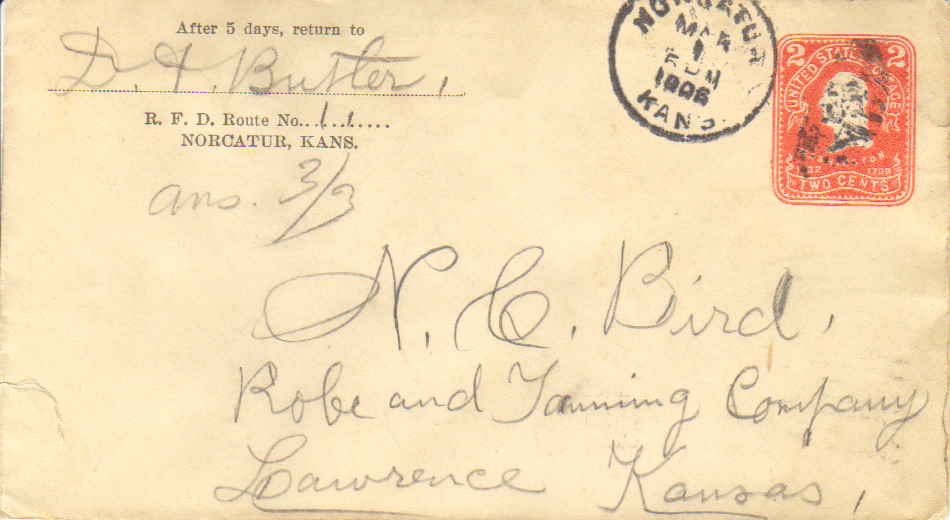 After 5 days, return to
D. A. Butler,
R. F. D. Route No...1.1.....
NORCATUR, KANS.
ans. 3/3
NORCATUR
MAR
1
1906
KANS.
2 2
UNITED STATES POSTAGE
1799
TWO CENTS
N. C. Bird,
Robe and Tanning Company
Lawrence Kansas,